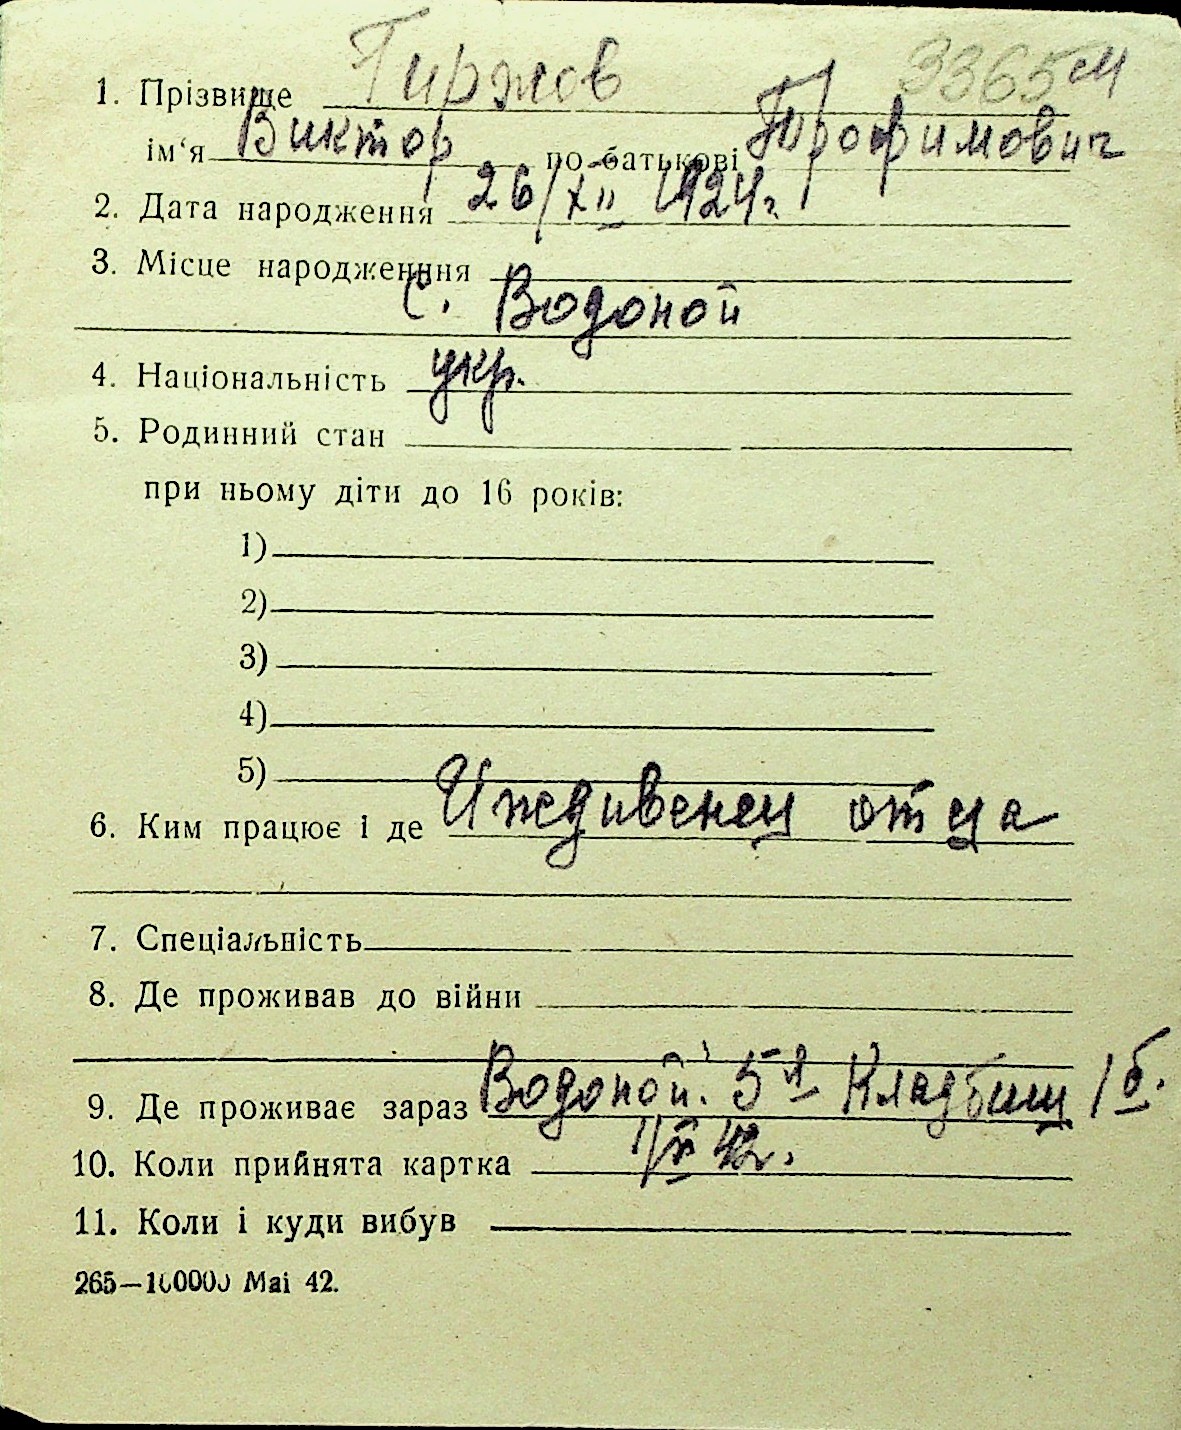 3365 м
1. Прізвище Гиржов
ім'я Виктор по батькові Трофимович
2. Дата народження 26/XII 1924 г.
3. Місце народженння
с. Водопой
4. Національність укр.
5. Родинний стан
при ньому діти до 16 років:
1)
2)
3)
4)
5)
6. Ким працює і де Иждивенец отца
7. Спеціальність
8. Де проживав до війни
9. Де проживає зараз Водопой. 5я Кладбищ 1б.
10. Коли прийнята картка 42.
11. Коли і куди вибув
265—100000 Mai 42.